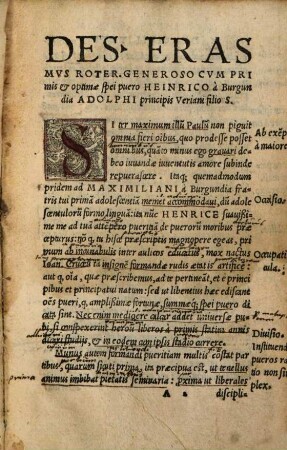 DES. ERAS
MVS ROTER. GENEROSO CVM PRI
mis & optimæ spei puero HEINRICO à Burgun
dia ADOLPHI principis Veriani filio S.
SI ter maximum illū Paulū non piguit
omnia fieri oĩbus, quo prodesse posset
omnibus, quāto minus ego grauari de
beo iuuandæ iuuentutis amore subinde
repuerascere. Itaq; quemadmodum
pridem ad MAXIMILIANI à Burgundia fra
tris tui primā adolescentiā memet accommodaui, dū adole
scentulorū formo linguā: ita nūc HENRICE suauissi
me me ad tuā attēpero pueritiā de puerorū moribus præ
cepturus: nō q, tu hisce præscriptis magnopere egeas, pri
mum ab incunabulis inter aulicos educatus, mox nactus
Ioan. Crucium tā insignē formandæ rudis ætatis artificē:
aut q, oĩa, quæ præscribemus, ad te pertineāt, & è princi
pibus et principatui natum: sed ut libentius hæc ediscant
oēs pueri, q, amplissimæ fortunæ, summæq; spei puero di
cata sint. Nec enim mediocre calcar addet uniuersæ pu
bi, si conspexerint heroū liberos à primis statim annis
dicari studijs, & in eodem cum ipsis stadio currere.
Munus autem formandi pueritiam multis cōstat par
tibus, quarum sicuti prima, ita præcipua est, ut tenellus
animus imbibat pietatis seminaria: proxima ut liberales
A discipli-
Ab exēp
à maiore
Occasio.
Occupati
cula.
Diuisio.
Instituendi
pueros ra
tio non sim
plex.